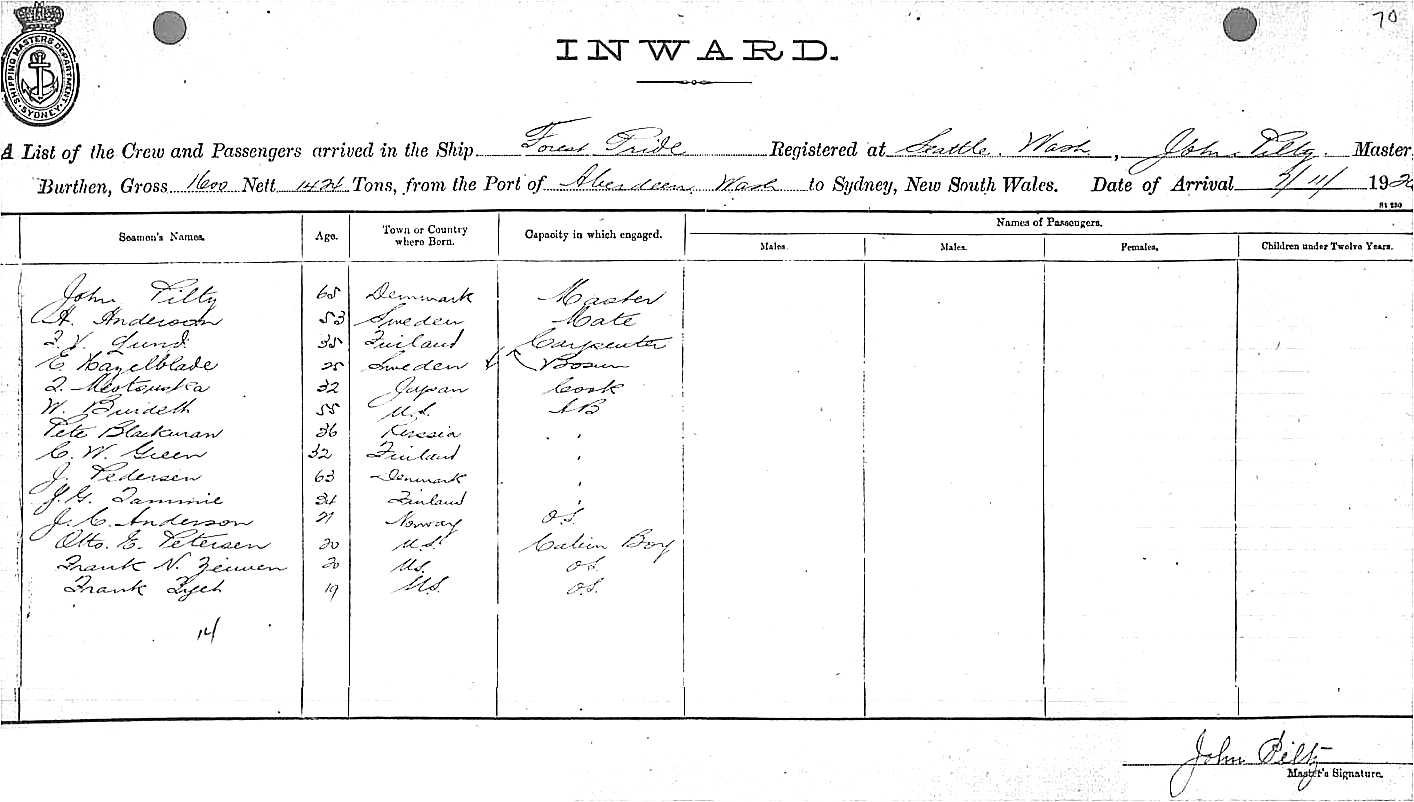 70
SHIPPING MASTERS DEPARTMENT
SYDNEY
INWARD.
A List of the Crew and Passengers arrived in the Ship Forest Pride Registered at Seattle. Wash, John Piltz. Master,
Burthen, Gross 1600 Nett 1424 Tons, from the Port of Aberdeen, Wash to Sydney, New South Wales. Date of Arrival /11/ 192
St 230
Seamen's Names. Age. Town or Country where Born. Capacity in which engaged. Names of Passengers.
Males. Males. Females. Children under Twelve Years.
John Piltz 65 Denmark Master
A. Anderson 53 Sweden Mate
Lund 35 Finland Carpenter
E. Hagelblade 25 Sweden Bosun
32 Japan Cook
W. Burdeth 55 U.S. AB
Pete Blackman 36 Russia "
C. W. Green 32 Finland "
J. Pedersen 63 Denmark "
J. G. Tammie 34 Finland "
J. C. Anderson 21 Norway O.S.
Otto. E. Petersen 20 U.S. Cabin Boy
Frank N. Zeuwen 20 U.S. O.S.
Frank 19 U.S. O.S.
14
John Piltz
Master's Signature.